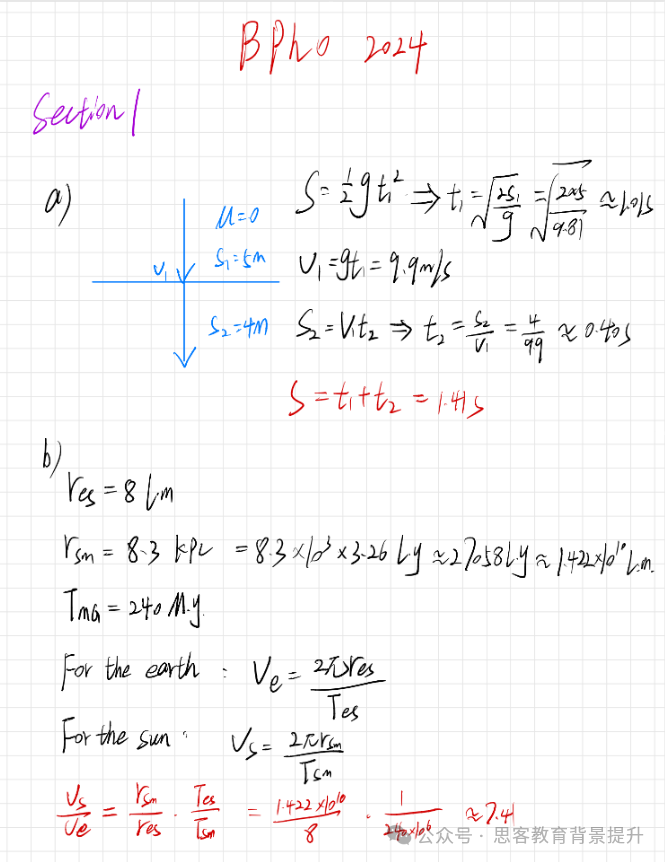 BPhO 2024
Section 1
a)
u=0
S₁=5m
V₁
S₂=4m
S=½gt₁² ⇒ t₁=√(2S₁/g) = √(2×5/9.81) ≈1.01s
V₁=gt₁=9.9m/s
S₂=V₁t₂ ⇒ t₂=S₂/V₁=4/9.9≈0.40s
S=t₁+t₂=1.41s
b)
r_es=8 L.m
r_sm=8.3 kpc =8.3×10³×3.26 L.y≈27058L.y≈1.422×10¹⁰L.m.
T_MG=240 M.y.
For the earth: V_e=2πr_es/T_es
For the sun: V_s=2πr_sm/T_sm
V_s/V_e=r_sm/r_es·T_es/T_sm=1.422×10¹⁰/8·1/240×10⁶≈7.41
公众号·思客教育背景提升